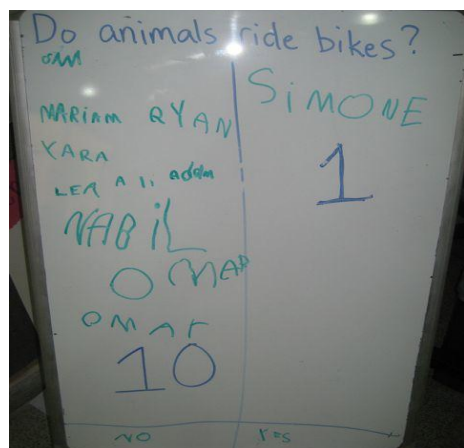 Do animals ride bikes?
MARiAM RYAN
YARA
LEA Ali adam
NABiL
OMAR
OMAr
10
NO
SiMONE
1
Yes